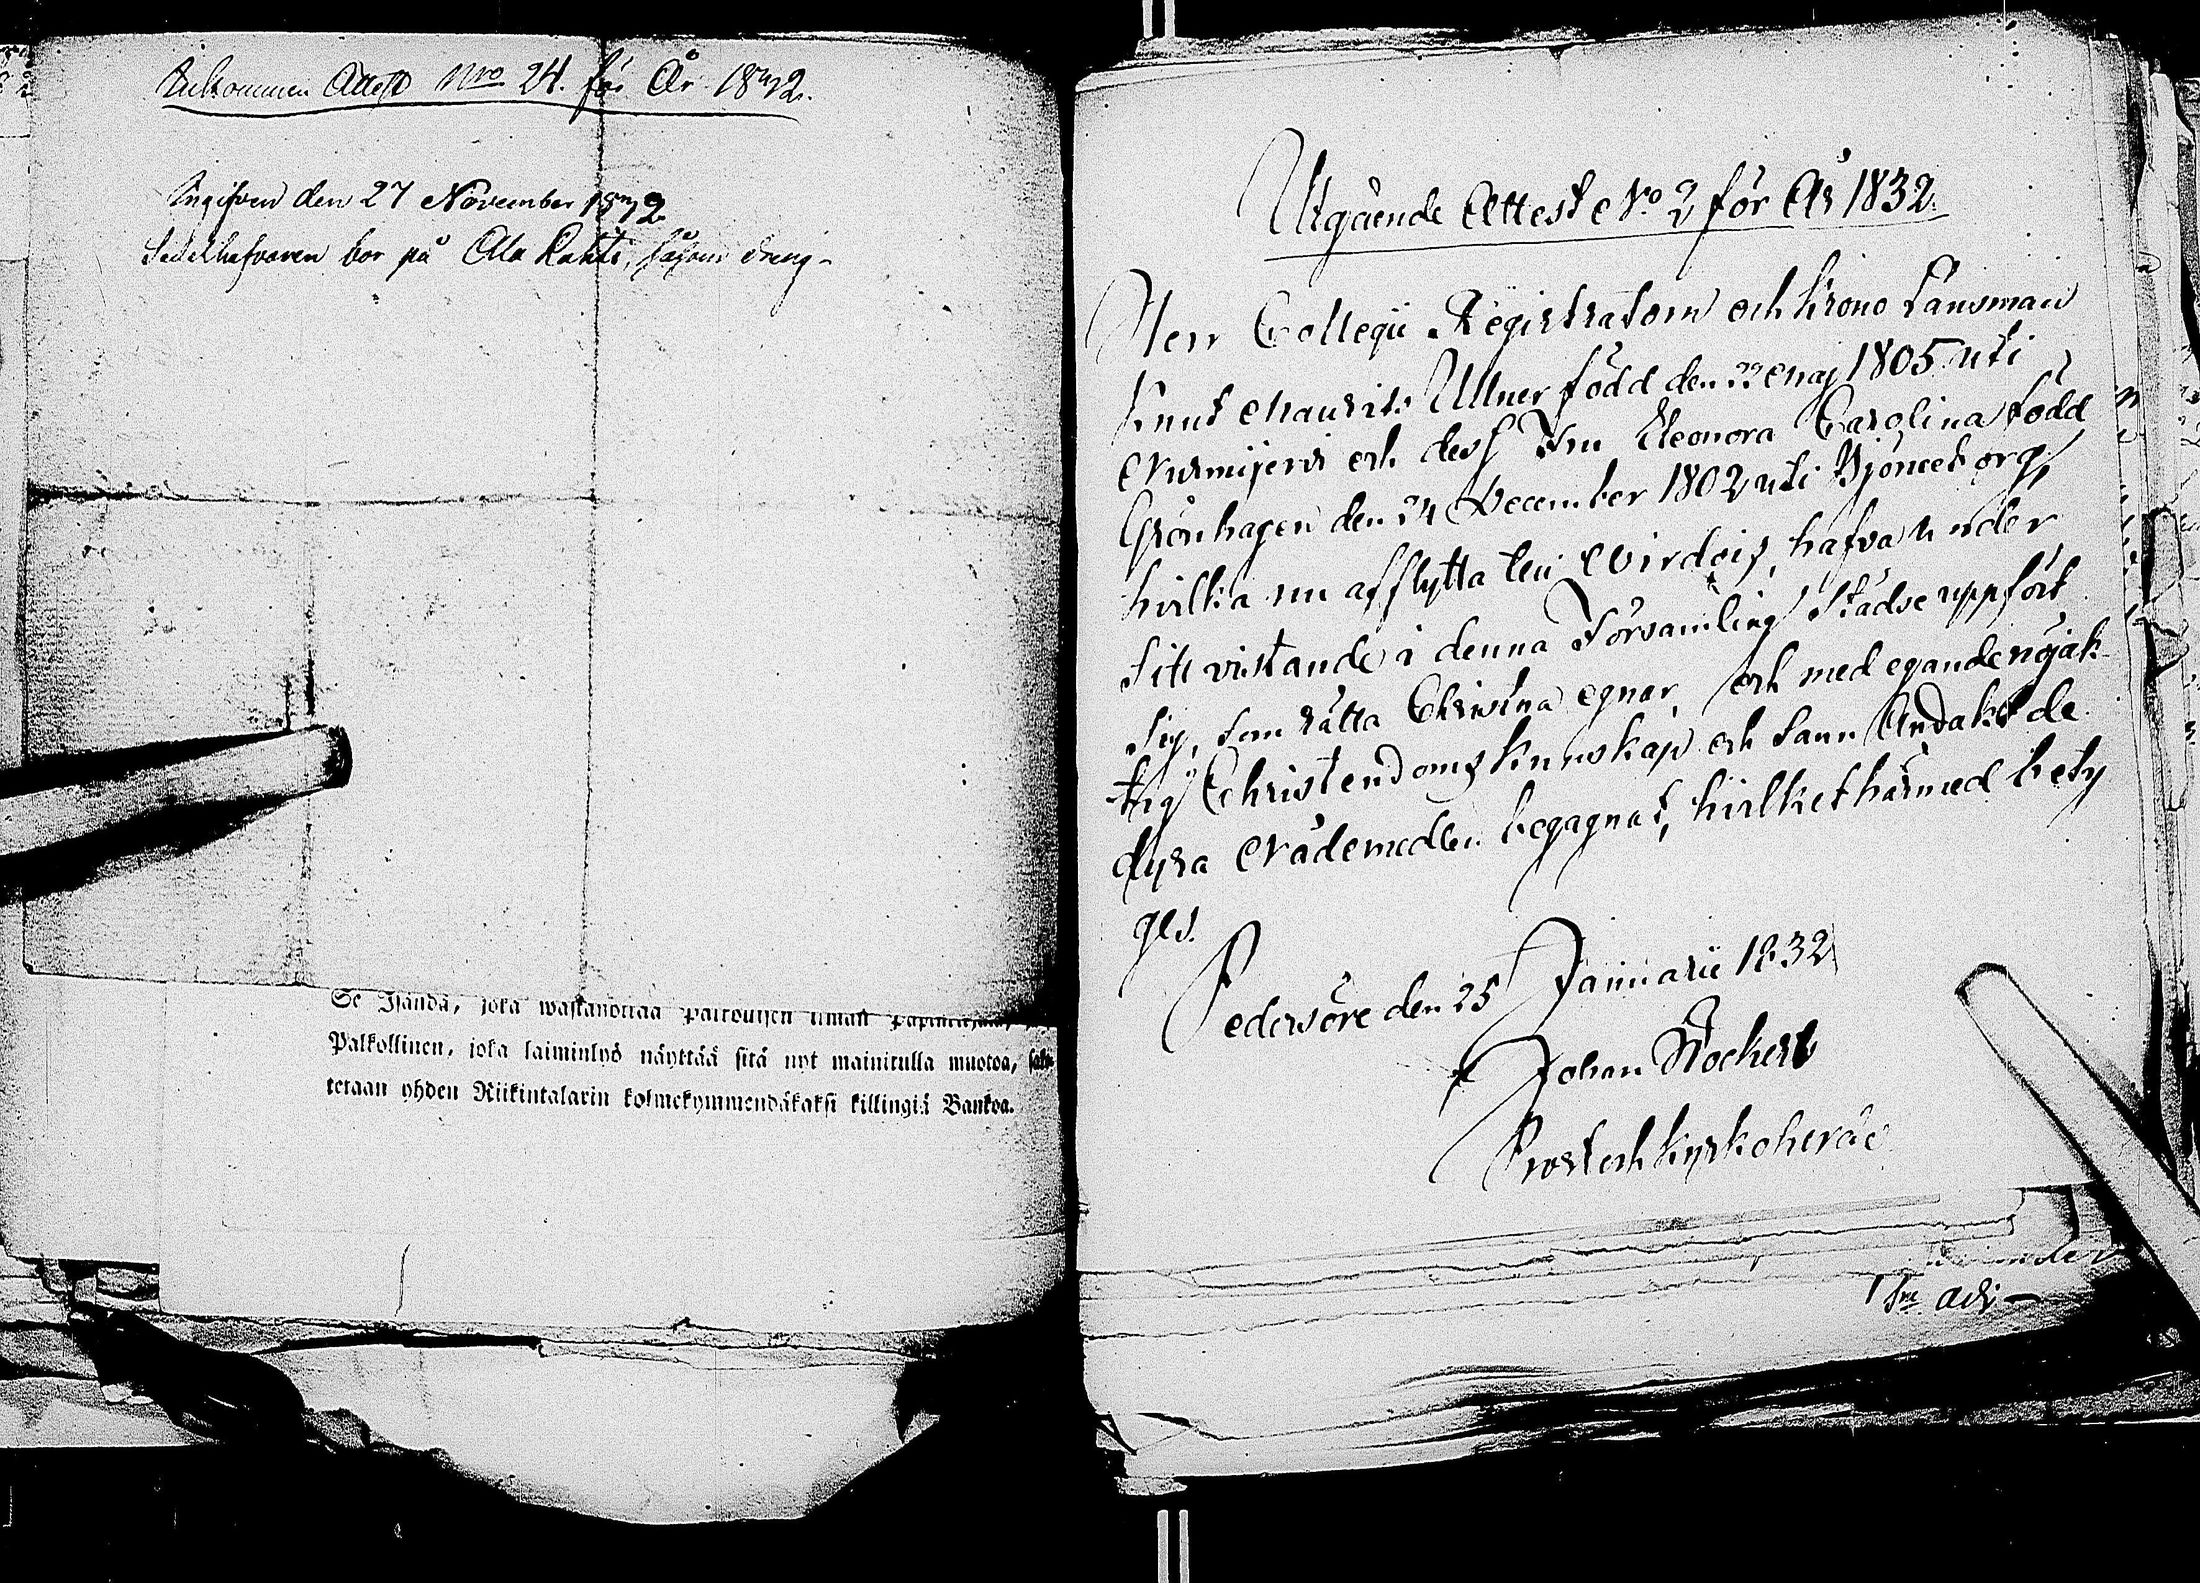 Inkommen Attest Nro 24. för År 1832.
Ingifven den 27 November 1832
Sedelhafvaren bor på Ala Rahti, såsom dreng
Se Isändä, joka wastanottaa palkollisen ilman
Palkollinen, joka laiminlyö näyttää sitä nyt mainitulla muotoa,
tetaan yhden Riikintalarin kolmekymmendäkaksi killingiä Bankoa.
Utgående Attest No 2 för År 1832.
Herr Collegii Registratorn och Krono Länsman
Knut Maurits Ullner född den 22 Maj 1805 uti
och dess Fru Eleonora Carolina född
Grönhagen den 24 December 1802 uti Björneborg,
hvilka nu afflytta till Wirdois, hafva under
sitt vistande i denna Församling städse uppfört
sig, som rätta Christna egnar, och med egande nöjak-
tig Christendoms kunskap och sann Andakt de
dyra Nådemedlen begagnat, hvilket härmed bety
ges.
Pedersöre den 25 Januarii 1832
Johan Stockert
Prost och Kyrkoherde